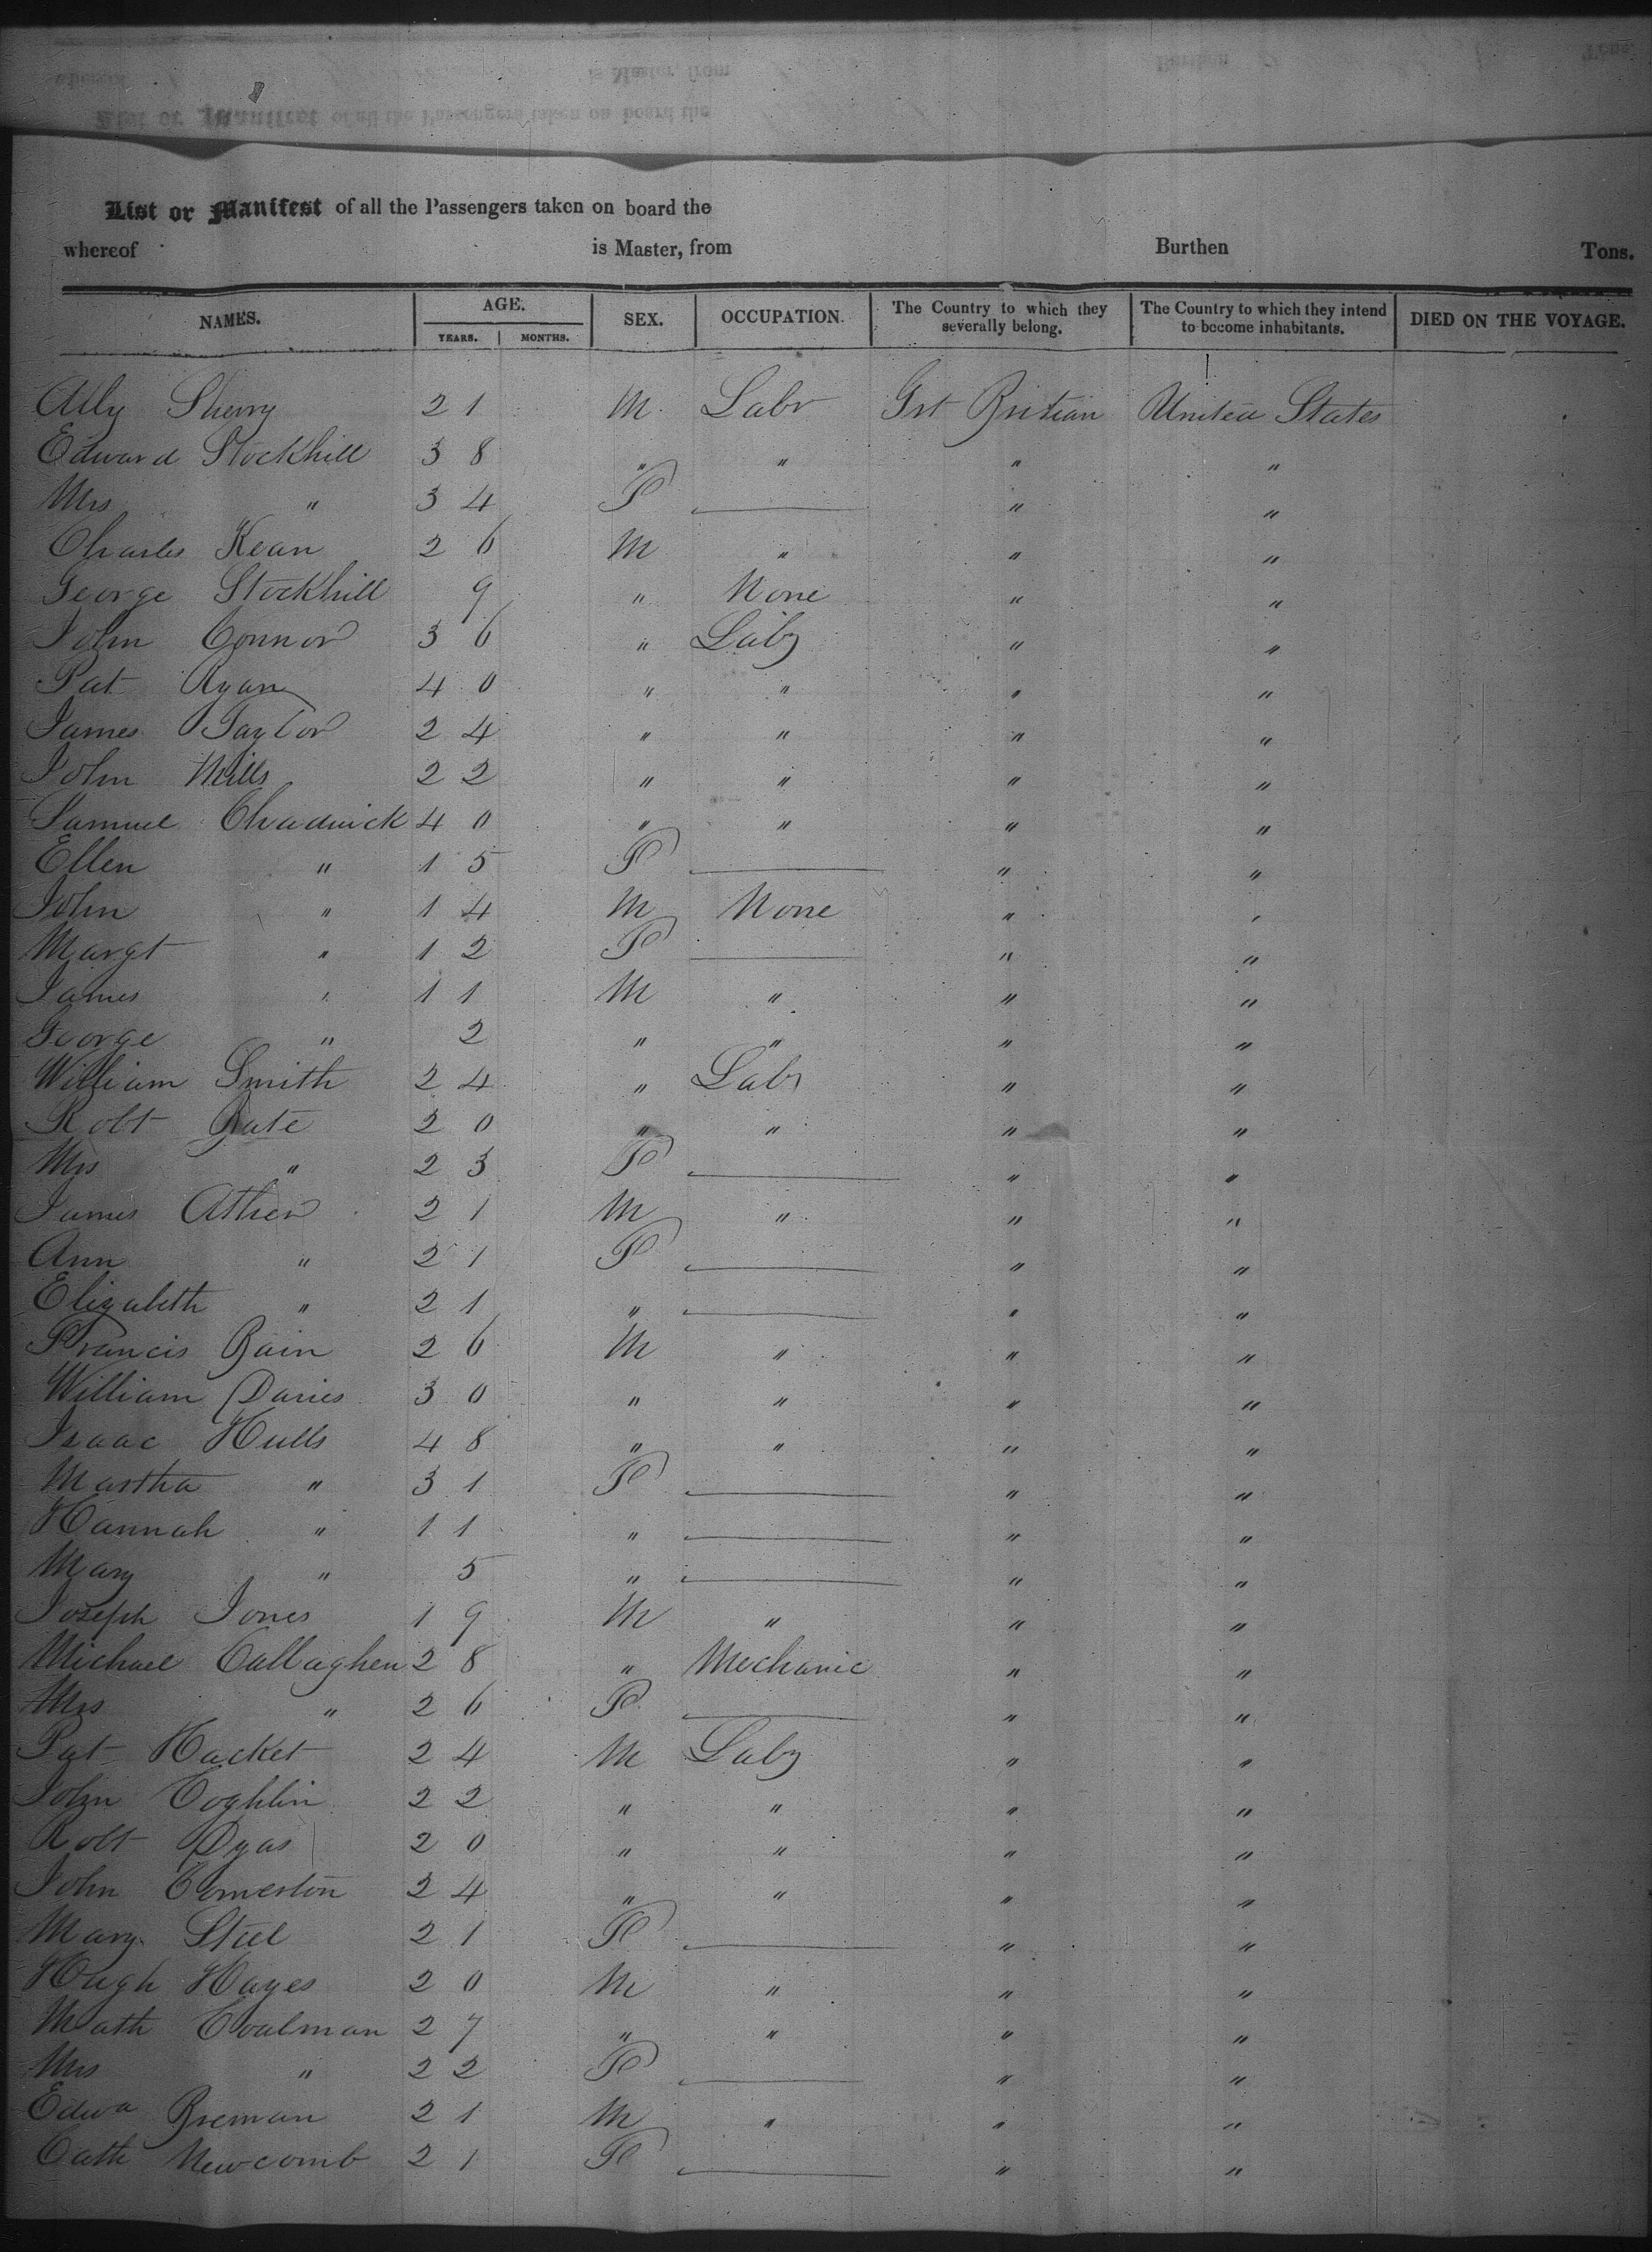 List or Manifest of all the Passengers taken on board the
whereof is Master, from Burthen Tons.
NAMES. AGE. YEARS. MONTHS. SEX. OCCUPATION. The Country to which they severally belong. The Country to which they intend to become inhabitants. DIED ON THE VOYAGE.
Ally Sherry 21 M. Labr Grt Britian United States
Edward Stockhill 38 " " " "
Mrs " 34 F — " "
Charles Kean 26 M " " "
George Stockhill 9 " None " "
John Connor 36 " Labr " "
Pat Ryan 40 " " " "
James Taylor 24 " " " "
John Mills 22 " " " "
Samuel Chadwick 40 " " " "
Ellen " 15 F — " "
John " 14 M None " "
Margt " 12 F — " "
James " 11 M " " "
George " 2 " " " "
William Smith 24 " Labr " "
Robt Bate 20 " " " "
Mrs " 23 F — " "
James 21 M " " "
Ann " 21 F — " "
Elizabeth " 21 " — " "
Francis Bain 26 M " " "
William Davies 30 " " " "
Isaac Hulls 48 " " " "
Martha " 31 F — " "
Hannah " 11 " — " "
Mary " 5 " — " "
Joseph Jones 19 M " " "
Michael Callaghen 28 " Mechanic " "
Mrs " 26 F — " "
Pat Hacket 24 M Labr " "
John Coghlin 22 " " " "
Robt Dyas 20 " " " "
John Comerton 24 " " " "
Mary Steel 21 F — " "
Hugh Hayes 20 M " " "
Math Coalman 27 " " " "
Mrs " 22 F — " "
Edwd Breman 21 M " " "
Cath Newcomb 21 F — " "